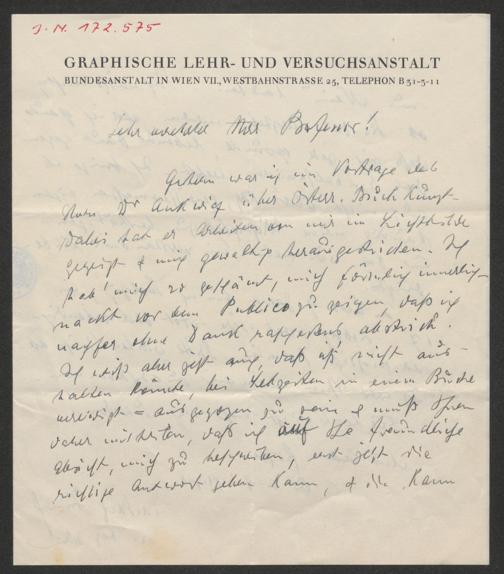 J.N. 172.575
GRAPHISCHE LEHR- UND VERSUCHSANSTALT
BUNDESANSTALT IN WIEN VII., WESTBAHNSTRASSE 25, TELEPHON B 31-5-11
Sehr verehrter Herr Professor!
Gestern war ich im Vortrage des
Herrn Dr Ankwicz über Österr. Buchkunst.
Dabei hat er Arbeiten von mir im Lichtbilde
gezeigt & mich gewaltig herausgestrichen. Ich
hab' mich so geschämt, mich förmlich innerlich
nackt vor dem Publico zu zeigen, daß ich
nachher ohne Dank abstrich.
Ich weiß aber jetzt auch, daß ich's nicht aus-
halten könnte, bei Lebzeiten in einem Buche
= ausgezogen zu sein & muß Ihnen
daher mitteilen, daß ich auf Ihre freundliche
Absicht, mich zu beschreiben, erst jetzt die
richtige Antwort geben kann, & die kann